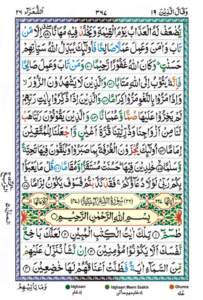 وَقَالَ الَّذِيْنَ ١٩ ٣٦٧ الشُّعَرَآء ٢٦
يُّضٰعَفْ لَهُ الْعَذَابُ يَوْمَ الْقِيٰمَةِ وَيَخْلُدْ فِيْهٖ مُهَانًا اِلَّا مَنْ
تَابَ وَاٰمَنَ وَعَمِلَ عَمَلًا صَالِحًا فَاُولٰٓئِكَ يُبَدِّلُ اللّٰهُ سَيِّاٰتِهِمْ
حَسَنٰتٍ وَكَانَ اللّٰهُ غَفُوْرًا رَّحِيْمًا وَمَنْ تَابَ وَعَمِلَ صَالِحًا
فَاِنَّهٗ يَتُوْبُ اِلَى اللّٰهِ مَتَابًا وَالَّذِيْنَ لَا يَشْهَدُوْنَ الزُّوْرَ
وَاِذَا مَرُّوْا بِاللَّغْوِ مَرُّوْا كِرَامًا وَالَّذِيْنَ اِذَا ذُكِّرُوْا بِاٰيٰتِ رَبِّهِمْ
لَمْ يَخِرُّوْا عَلَيْهَا صُمًّا وَّعُمْيَانًا وَالَّذِيْنَ يَقُوْلُوْنَ رَبَّنَا هَبْ
لَنَا مِنْ اَزْوَاجِنَا وَذُرِّيّٰتِنَا قُرَّةَ اَعْيُنٍ وَّاجْعَلْنَا لِلْمُتَّقِيْنَ
اِمَامًا اُولٰٓئِكَ يُجْزَوْنَ الْغُرْفَةَ بِمَا صَبَرُوْا وَيُلَقَّوْنَ فِيْهَا تَحِيَّةً
وَّسَلٰمًا خٰلِدِيْنَ فِيْهَا حَسُنَتْ مُسْتَقَرًّا وَّمُقَامًا قُلْ مَا يَعْبَؤُا
بِكُمْ رَبِّيْ لَوْلَا دُعَآؤُكُمْ فَقَدْ كَذَّبْتُمْ فَسَوْفَ يَكُوْنُ لِزَامًا
بِسْمِ اللّٰهِ الرَّحْمٰنِ الرَّحِيْمِ
طٰسٓمّٓ تِلْكَ اٰيٰتُ الْكِتٰبِ الْمُبِيْنِ لَعَلَّكَ بَاخِعٌ
نَّفْسَكَ اَلَّا يَكُوْنُوْا مُؤْمِنِيْنَ اِنْ نَّشَاْ نُنَزِّلْ عَلَيْهِمْ
مِّنَ السَّمَآءِ اٰيَةً فَظَلَّتْ اَعْنَاقُهُمْ لَهَا خٰضِعِيْنَ
وَمَا يَاْتِيْهِمْ
Ikhfa Meem Saakin